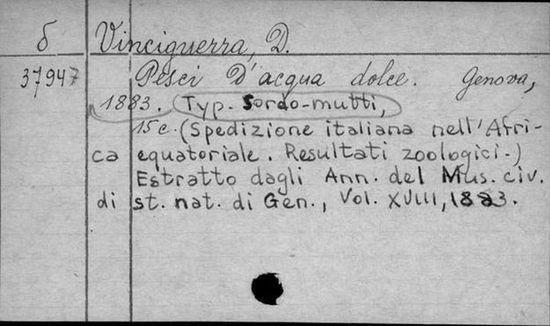 б Vinciguerra, D.
37947 Pesci D'acqua dolce. Genova,
1883. Typ. Sordo-mutti,
15 c. (Spedizione italiana nell'Afri-
ca equatoriale. Resultati zoologici.)
Estratto dagli Ann. del Mus. civ.
di st. nat. di Gen., Vol. XVIII, 1883.